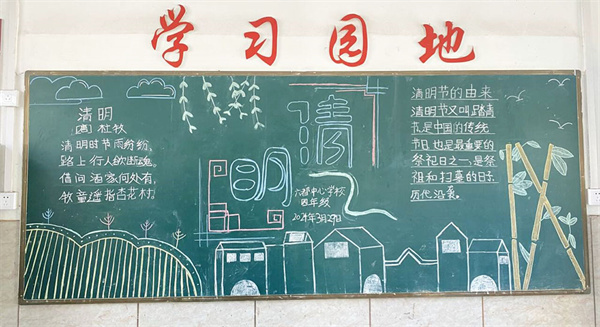 学习园地
清明
[唐] 杜牧
清明时节雨纷纷,
路上行人欲断魂。
借问酒家何处有,
牧童遥指杏花村
清
明
中心学校
四年级
2024年3月29日
清明节的由来
清明节又叫踏青
节,是中国的传统
节日也是最重要的
祭祀日之一,是祭
祖和扫墓的日子
历代沿袭。